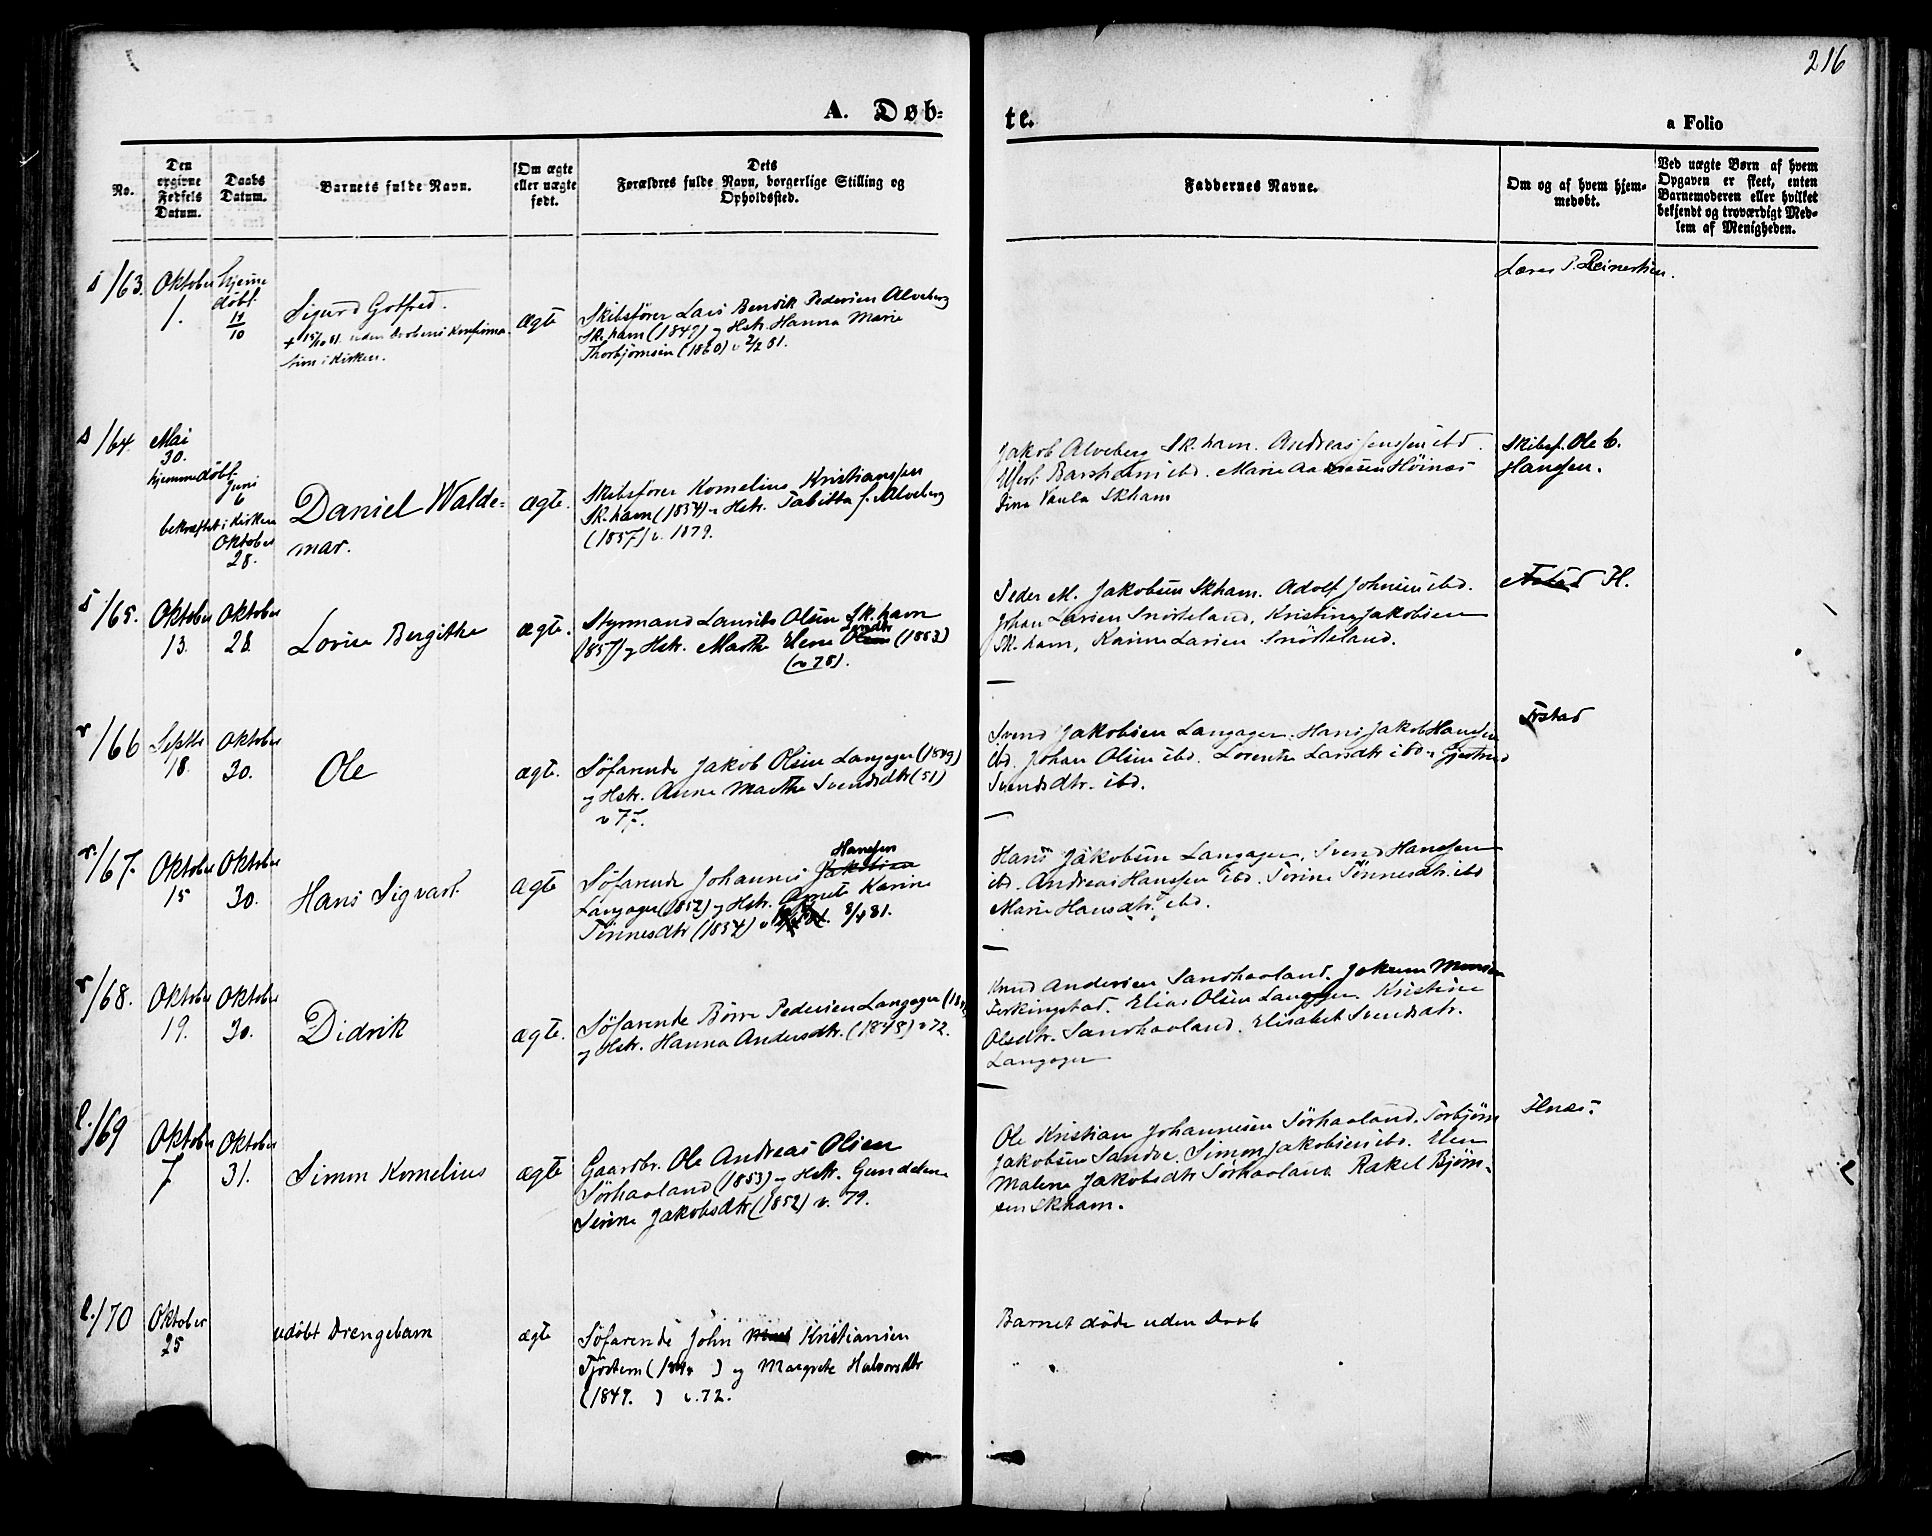 216
A. Døb-
te.
a Folio
No.
Den
opgivne
Fødsels
Datum.
Daabs
Datum.
Barnets fulde Navn.
Om ægte
eller uægte
født.
Dets
Forældres fulde Navn, borgerlige Stilling og
Opholdssted.
Faddernes Navne.
Om og af hvem hjem-
medøbt.
Ved uægte Børn af hvem
Opgaven er skeet, enten
Barnemoderen eller hvilket
bekjendt og troværdigt Med-
lem af Menigheden.
s/63.
Oktober
1.
hjemme
døbt
11/10
Sigurd Gotfred.
+ 15/10 81 uden Daabens Konfirma-
tion i Kirken.
ægte
Skibsfører Lars Bendik Pedersen Alveberg
Sk.havn (1849) og Hstr. Hanna Marie
Thorbjørnsen (1860) v 2/2 81.
Lærer P. Reinertsen.
s/64.
Mai
30.
hjemmedøbt
Juni
6
bekræftet i Kirken
Oktober
28.
Daniel Walde-
mar.
ægte.
Skibsfører Kornelius Kristianssen
Sk.havn (1854) og Hstr. Tabitta f. Alveberg
(1857) v. 1879.
Jakob Alveberg Sk.havn. Andreas Jenssen ibd.
ibd. Marie Høines
Sk.havn
Skibsf. Ole C.
Hanssen.
s/65.
Oktober
13.
Oktober
28.
Lovise Bergithe
ægte.
Styrmand Laurits Olsen Sk.havn
(1857) og Hstr. Marthe Elene Olsen (1853)
(v 78).
Peder M. Jakobsen Skhavn. Adolf Johnsen ibd.
Johan Larsen Snørteland, Kristine Jakobsen
Sk.havn, Karine Larsen Snørteland.
H.
r/66
Septbr
18.
Oktober
30.
Ole
ægte.
Søfarende Jakob Olsen Langager (1849)
og Hstr. Anne Marthe Svendsdtr (51)
v 77.
Svend Jakobsen Langager. Hans Jakob Hansen
ibd. Johan Olsen ibd. Lorentse Larsdtr ibd. Gjertrud
Svendsdtr. ibd.
r./67.
Oktober
15
Oktober
30.
Hans Sigvart
ægte
Hanssen
Søfarende Johannes Jakobsen
Langager (1852) og Hstr. Agnete Karine
Tønnesdtr (1854) v 8/4 81.
Hans Jakobsen Langager, Svend Hanssen
ibd. Andreas Hanssen ibd. Serine Tønnesdtr. ibd
Marie Hansdtr. ibd.
r/68.
Oktober
19.
Oktober
30.
Didrik
ægte.
Søfarende Børre Pedersen Langager
og Hstr. Hanna Andersdtr. (1848) v 72.
Knud Andersen Sandhaaland. Jokum Monsen
Ferkingstad. Elias Olsen Langager Kristine
Olsdtr. Sandhaaland. Elisabet Svendsdtr.
Langager
l./69
Oktober
7
Oktober
31.
Simon Kornelius
ægte
Gaardbr. Ole Andreas Olsen
Sørhaaland (1853) og Hstr. Gundelena
Serine Jakobsdtr (1852) v. 79.
Ole Kristian Johannesen Sørhaaland. Torbjørn
Jakobsen Sandve. Simon Jakobsen ibd. Elen
Malene Jakobsdtr Sørhaaland Rakel Bjørn-
sen Skhavn.
l./70
Oktober
25
udøbt Drengebarn
ægte
Søfarende John Kristiansen
Tjøstem ( ) og Margrete Halvorsdtr
(1849. ) v. 72.
Barnet døde uden Daab